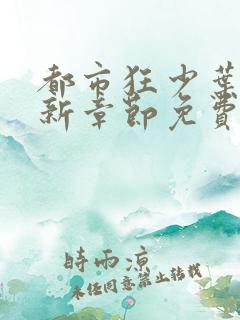 都市狂少葉
新章節免費
時雨涼
未经同意禁止转载